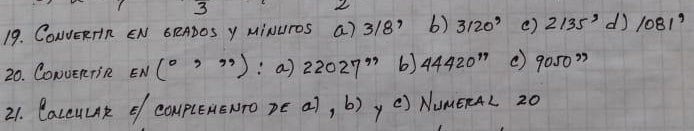 3 2
19. CONVERTIR EN GRADOS Y MINUTOS a) 318' b) 3120' c) 2135' d) 1081'
20. CONVERTIR EN (° ' ''): a) 22027'' b) 44420'' c) 9050''
21. CALCULAR E/ COMPLEMENTO DE a), b) y c) NUMERAL 20